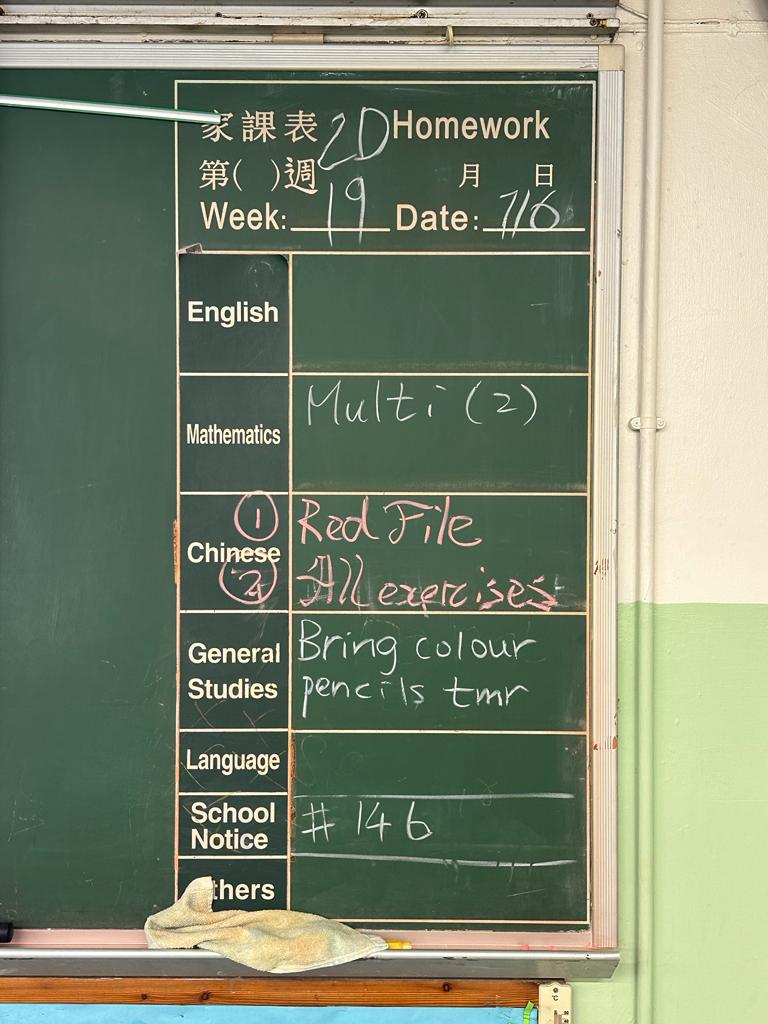 家課表 2D Homework
第( )週 月 日
Week: 19 Date: 7/6
English
Mathematics Multi (2)
Chinese ① Red File
② All exercises
General Studies Bring colour
pencils tmr
Language
School
Notice # 146
thers
°C